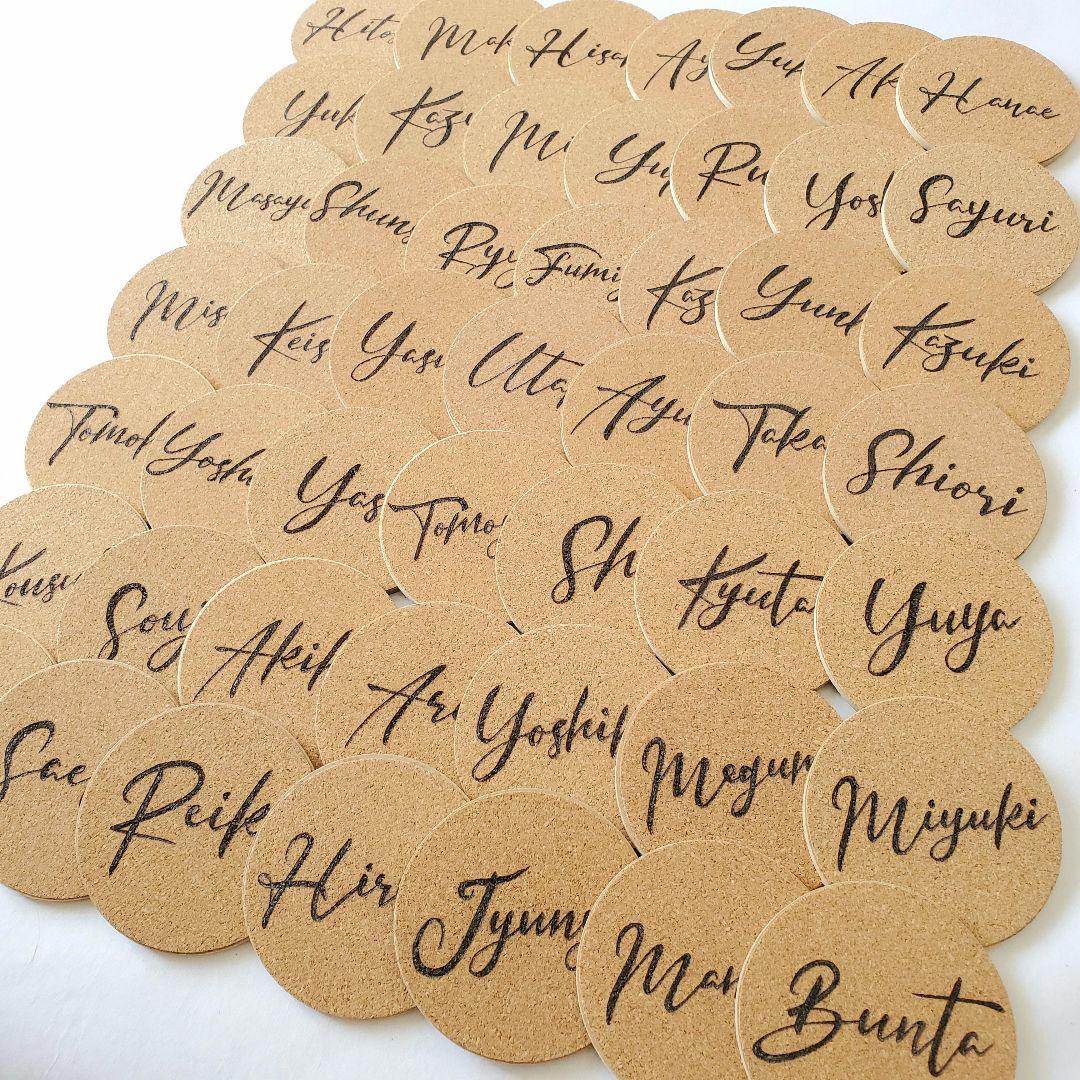 Hito
Mak
Hisa
Ay
Yuk
Ak
Hanae
Yuk
Kaz
Mi
Yu
Ru
Yos
Sayuri
Masay
Shun
Ry
Fumi
Kaz
Yu
Kazuki
Mis
Keis
Yas
Uta
Ayu
Taka
Shiori
Tomo
Yosh
Yas
Tomo
Sh
Kyuta
Yuya
Kous
Sou
Aki
Ar
Yoshi
Megum
Miyuki
Sae
Reik
Hir
Jyun
Ma
Bunta